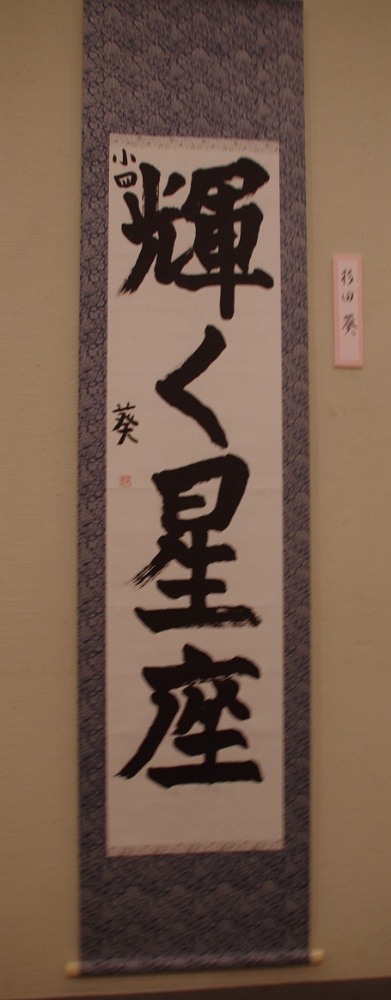 輝く星座
小四
葵
杉田 葵